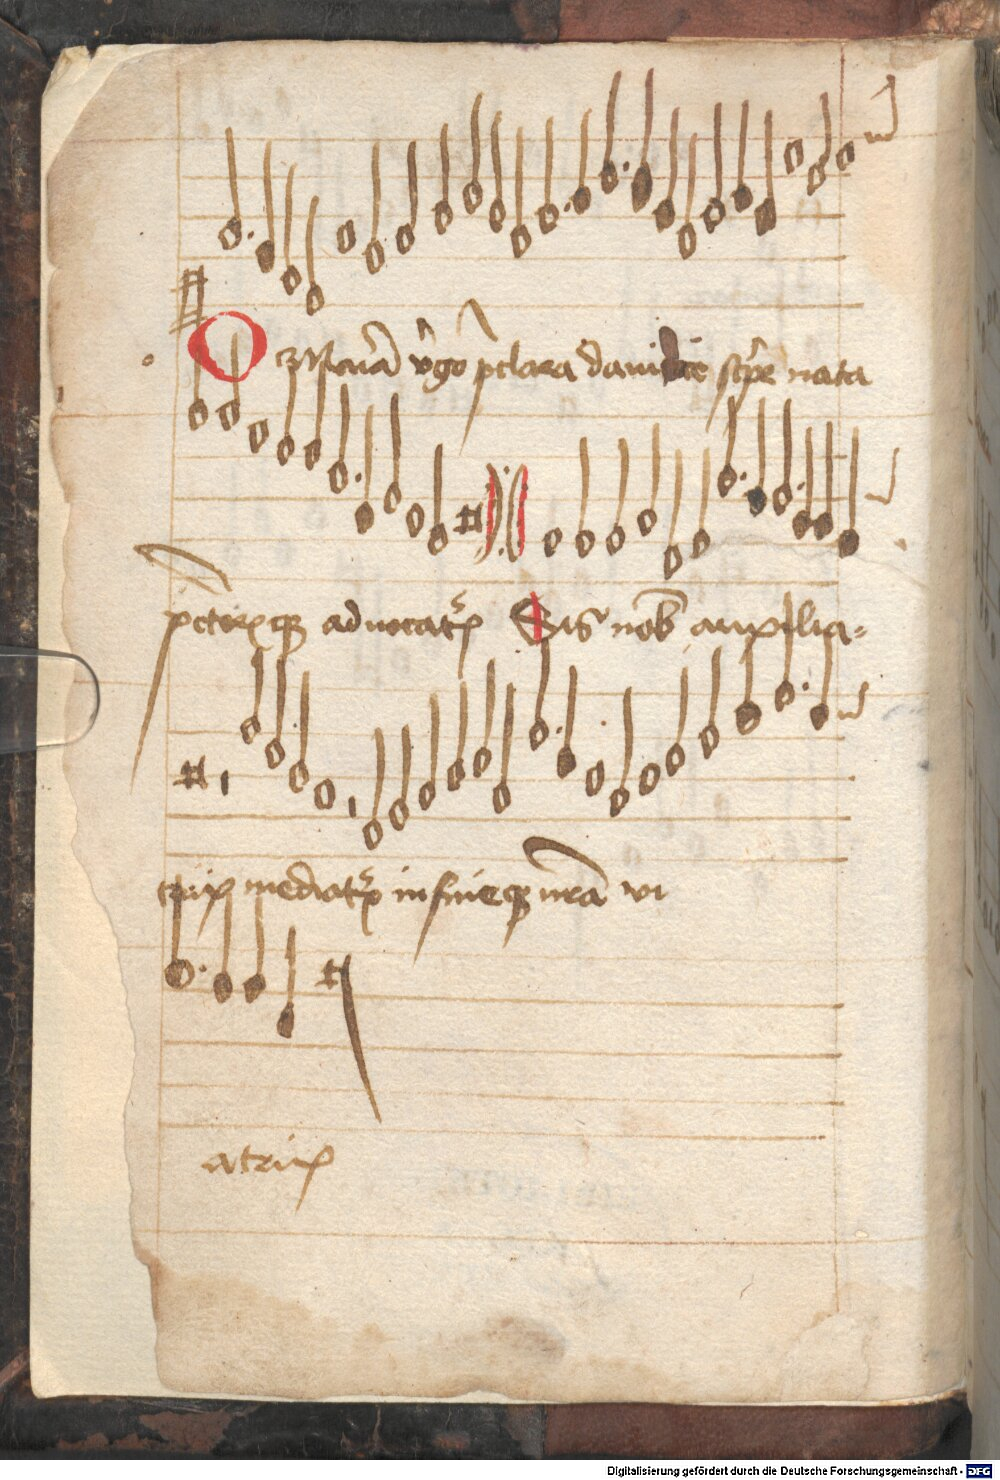 O virgo p̄clara dauitice stirpe nata
advocatrix Sis nob auxilia-
trix mediatrix in fineqꝫ nr̄a vi
atrix
Digitalisierung gefördert durch die Deutsche Forschungsgemeinschaft - DFG